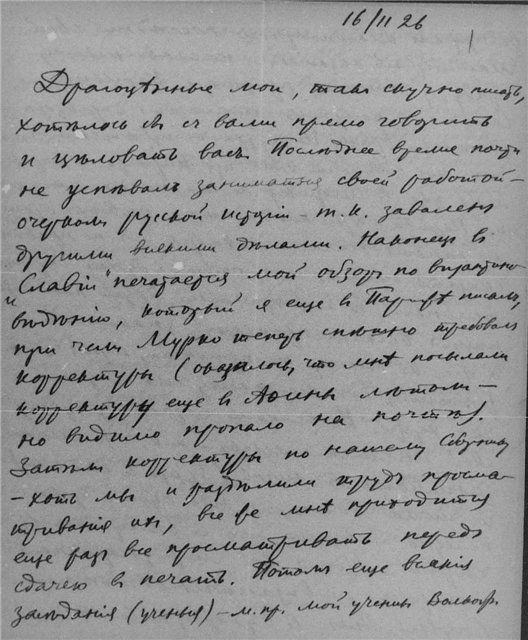 16/II 26
1
Драгоцѣнные мои, такъ скучно писать,
хотѣлось бы съ вами прямо говорить
и цѣловать васъ. Послѣднее время почти
не успѣвалъ заниматься своей работой –
очеркомъ русской исторіи – т.к. заваленъ
другими всякими дѣлами. Наконецъ въ
"Славіи" печатается мой обзоръ по византино-
вѣдѣнію, который я еще въ Парижѣ писалъ,
при чемъ Мурко теперь спѣшно требовалъ
корректуры (оказалось, что мнѣ посылали
корректуру еще въ Афины лѣтомъ –
но видимо пропало на почтѣ).
Затѣмъ корректуры по нашему Сборнику
– хоть мы и раздѣлили трудъ просма-
триванія ихъ, все же мнѣ приходится
еще разъ все просматривать передъ
сдачею въ печать. Потомъ еще всякія
засѣданія (ученыя) – м. пр. мой ученикъ